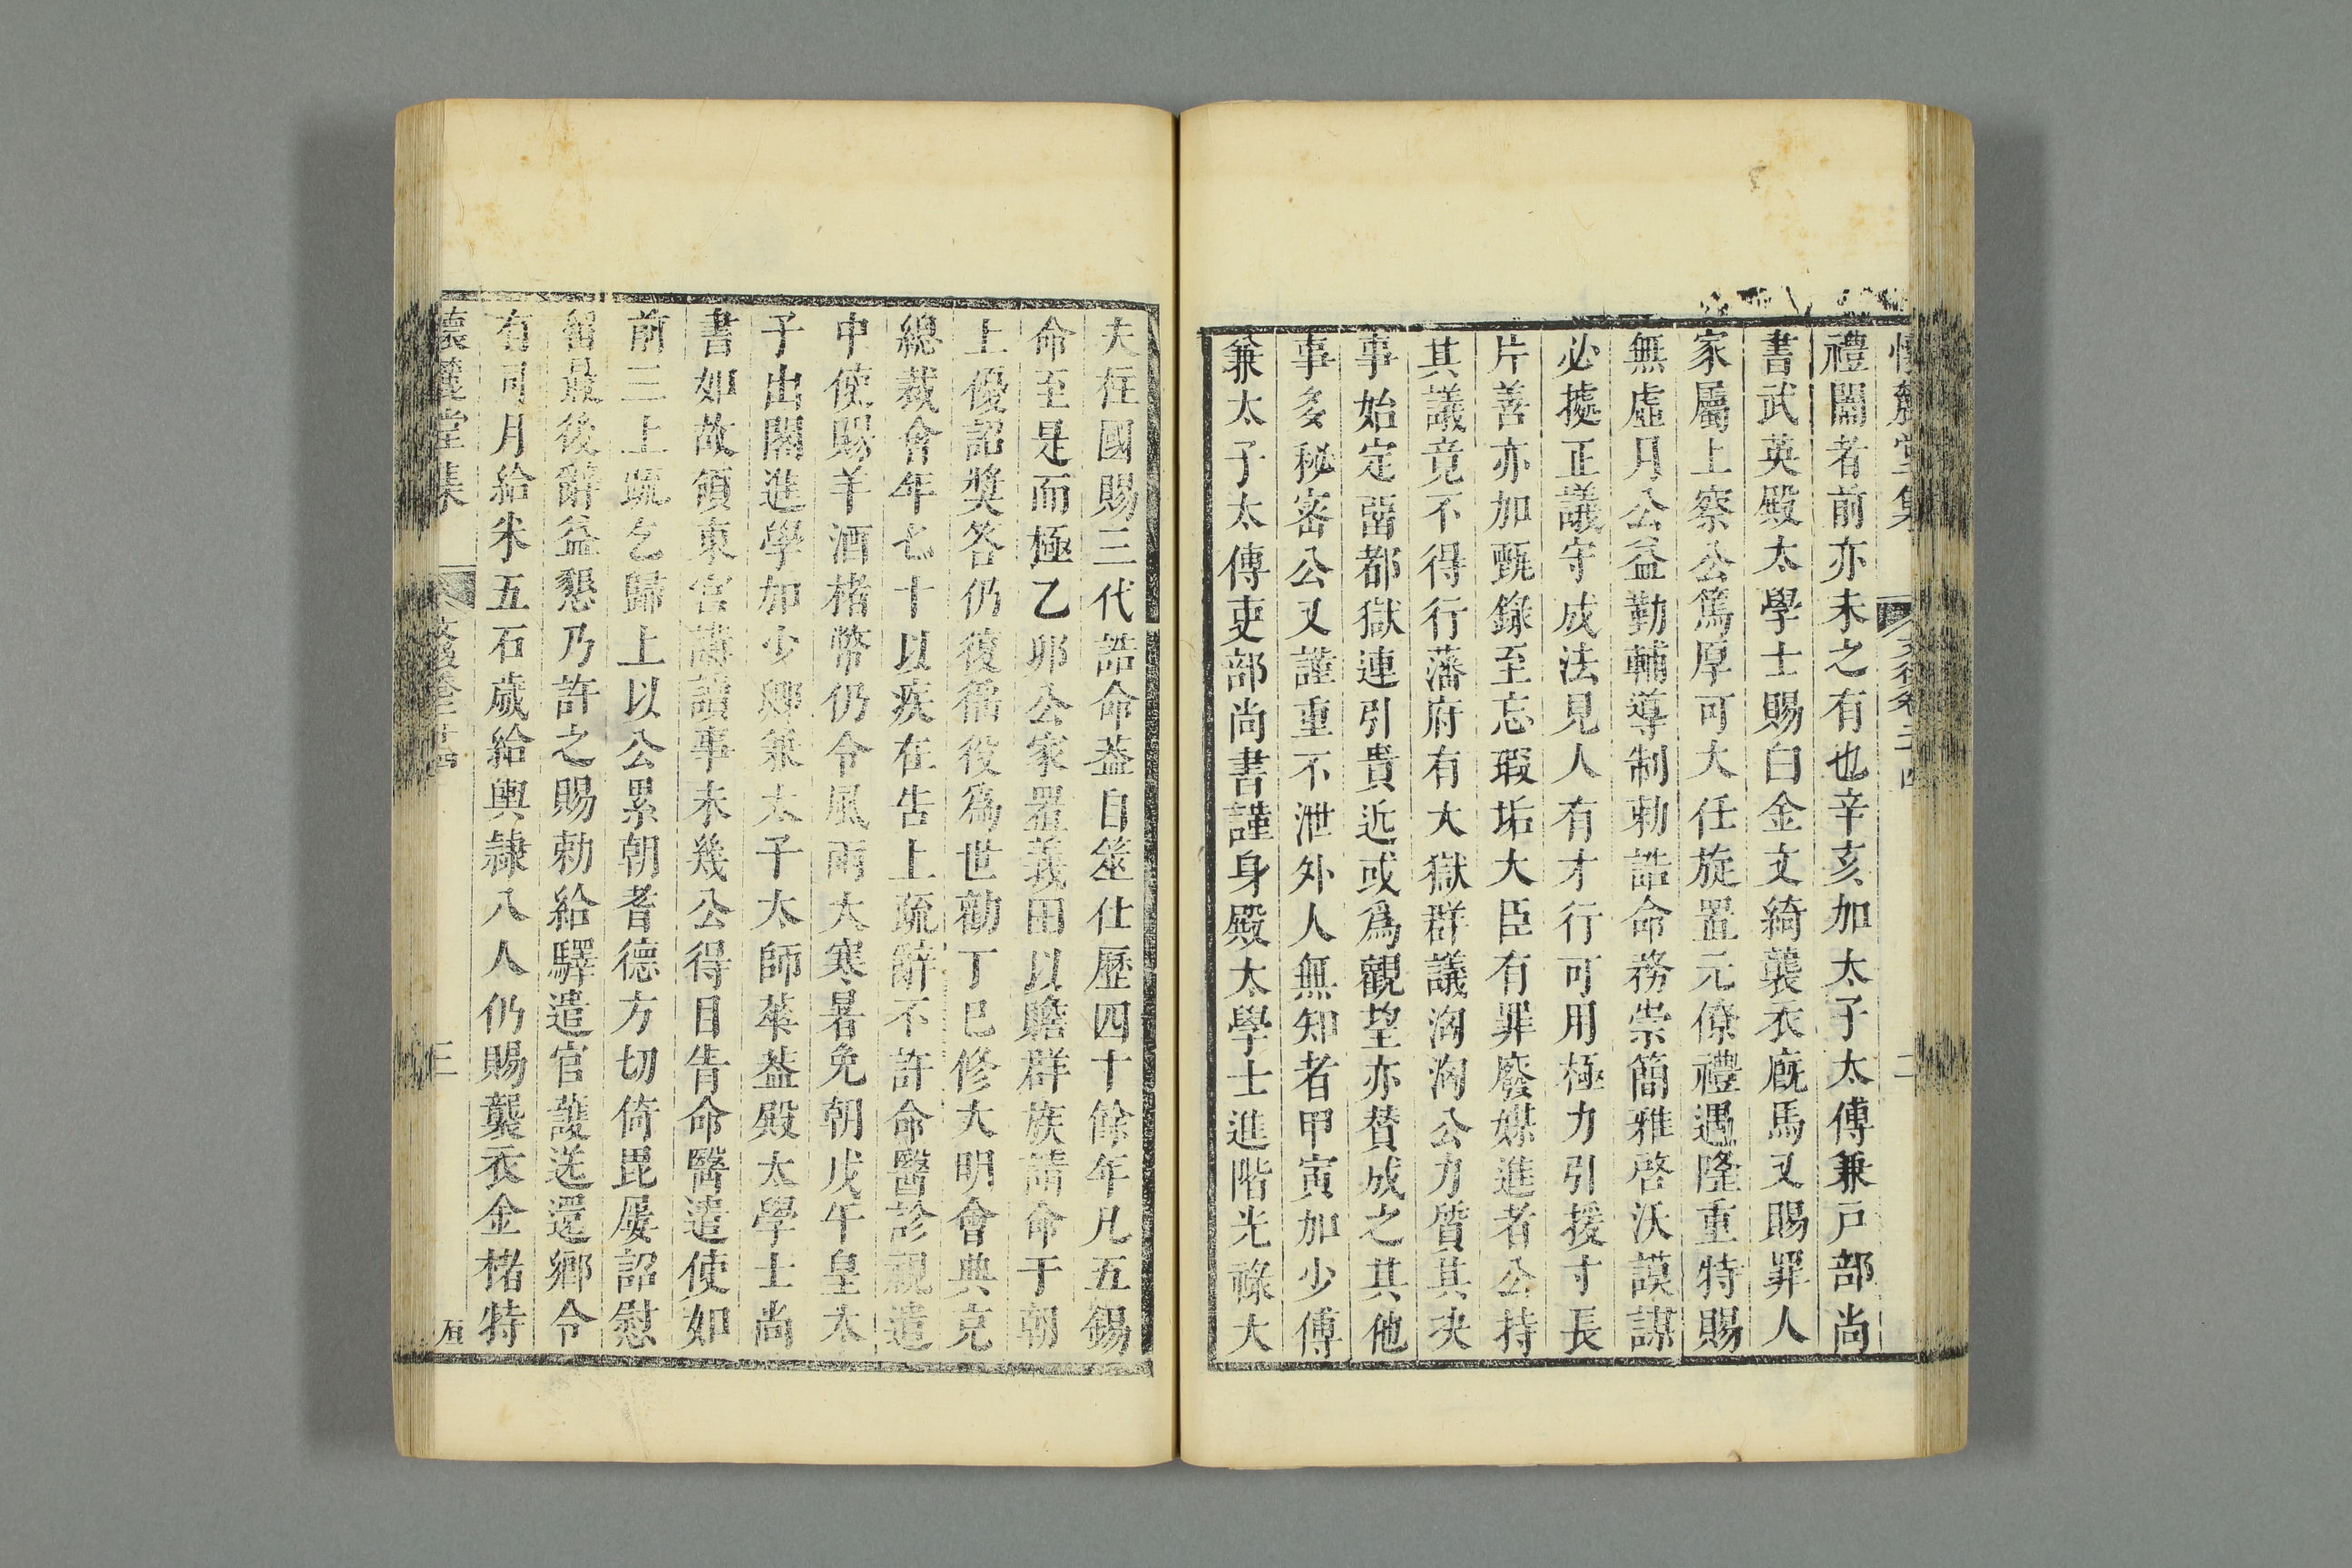 懷麓堂集 文後卷二十四 二
禮闈者前亦未之有也辛亥加太子太傅兼戸部尚
書武英殿大學士賜白金文綺襲衣廐馬又賜罪人
家屬上察公篤厚可大任旋置元僚禮遇隆重特賜
無虛月公益勤輔導制勅誥命務崇簡雅啓沃謨謀
必㨿正議守成法見人有才行可用極力引援寸長
片善亦加甄錄至忘瑕垢大臣有罪廢媒進者公持
其議竟不得行藩府有大獄群議洶洶公力質其决
事始定啚都獄連引貴近或爲觀望亦賛成之其他
事多秘密公又謹重不泄外人無知者甲寅加少傅
兼太子太傅吏部尚書謹身殿大學士進階光祿大
夫在國賜三代誥命葢自筮仕歷四十餘年凡五錫
命至是而極乙卯公家置義田以贍群族請命于朝
上優詔奬答仍復徭役爲世勸丁巳修大明會典克
總裁會年七十以疾在告上疏辭不許命醫診視遣
中使賜羊酒楮幣仍令風雨大寒暑免朝戊午皇太
子出閣進學加少卿兼太子太師華葢殿大學士尚
書如故領東宮講讀事未幾公得目眚命醫遣使如
前三上疏乞歸上以公累朝耆德方切倚毘屢詔慰
留最後辭益懇乃許之賜勅給驛遣官護送還鄉令
有司月給米五石歲給輿隷八人仍賜襲衣金楮特
懷麓堂集 文後卷二十四 三